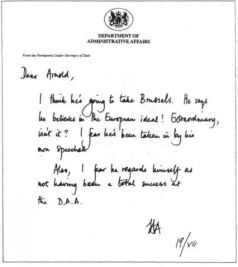 DEPARTMENT OF
ADMINISTRATIVE AFFAIRS
From the Permanent Under-Secretary of State
Dear Arnold,
I think he's going to take Brussels. He says
he believes in the European ideal! Extraordinary,
isn't it? I fear he's been taken in by his
own speeches.
Also, I fear he regards himself as
not having been a total success at
the D.A.A.
HA
19/vii